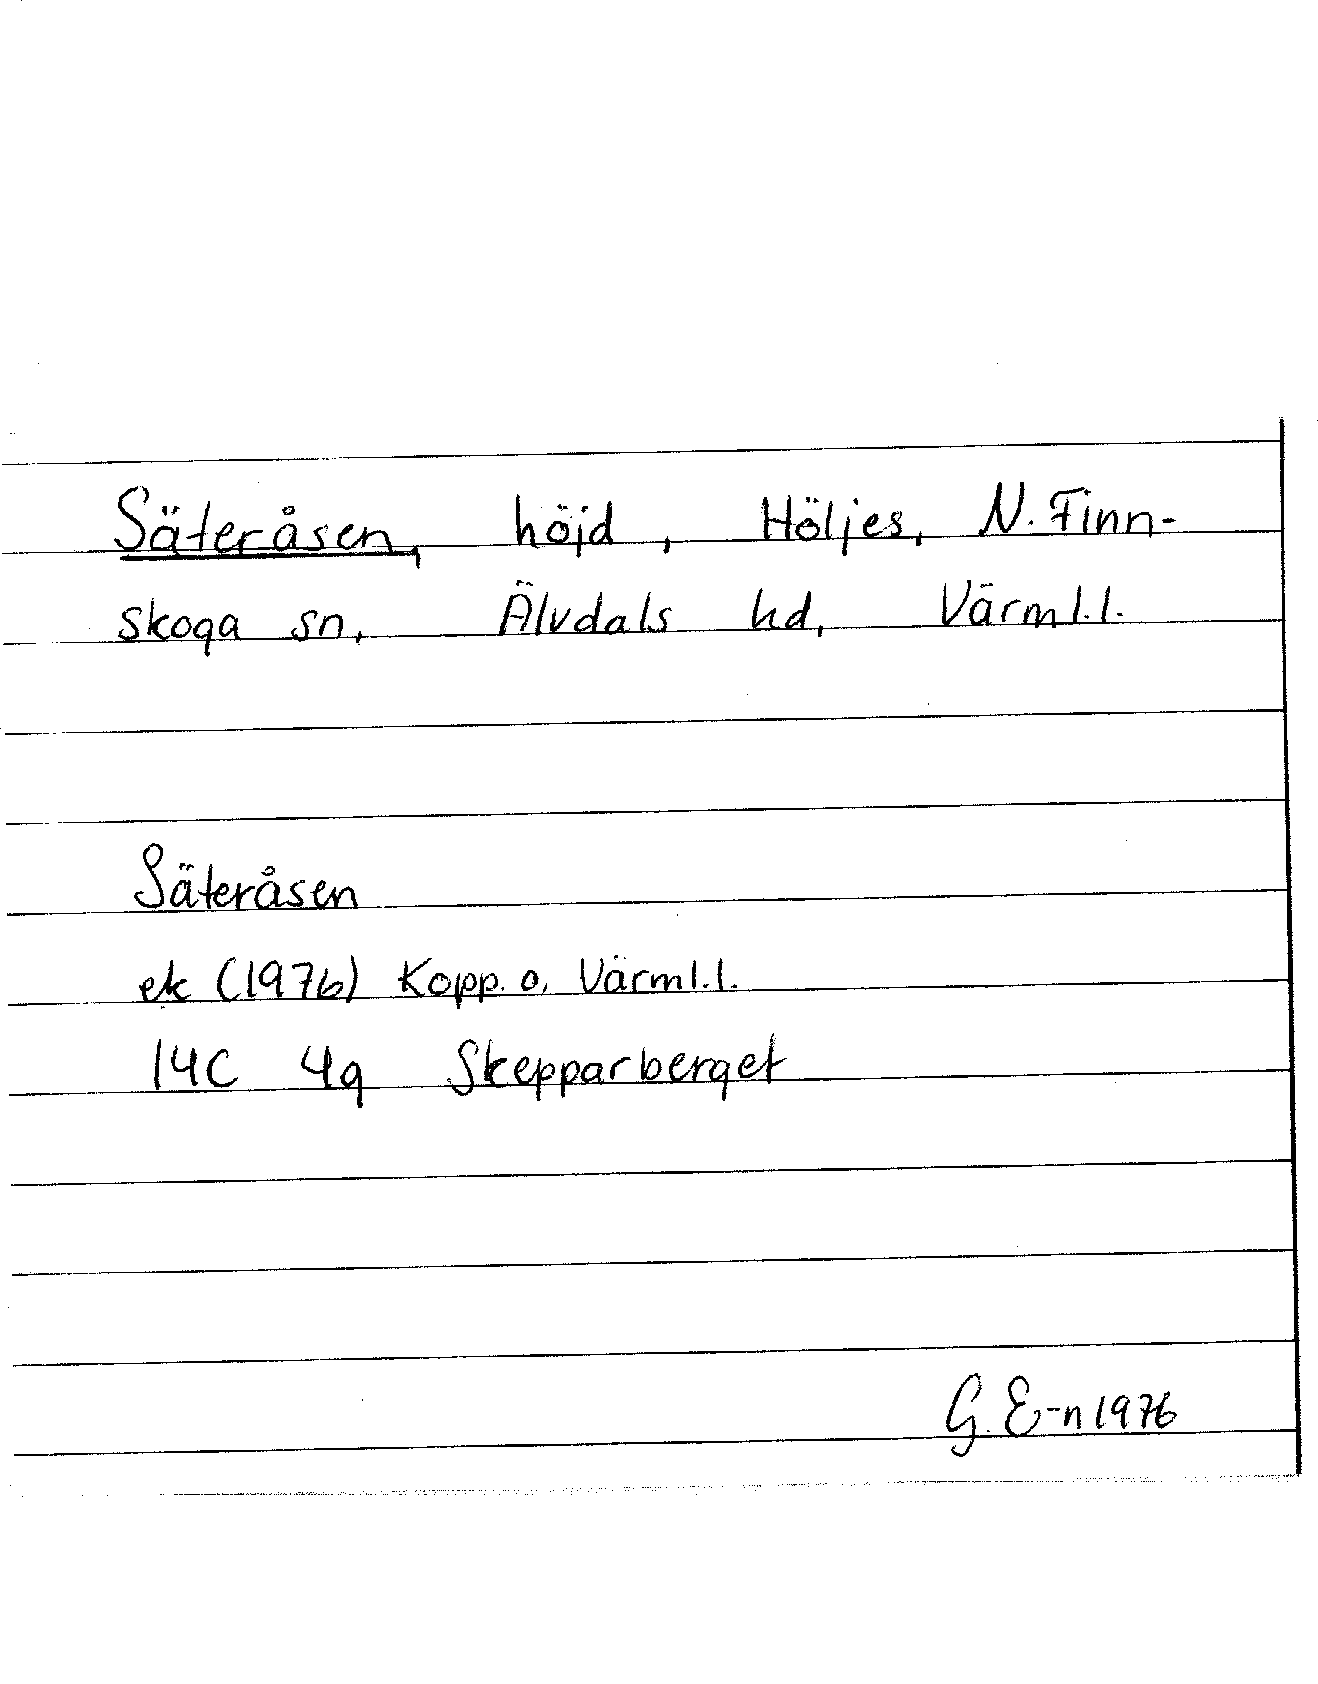 Säteråsen, höjd, Höljes, N. Finn-
skoga sn, Älvdals hd, Värml.l.
Säteråsen
ek (1976) Kopp. o. Värml.l.
14C 4g Skepparberget
G. E-n 1976